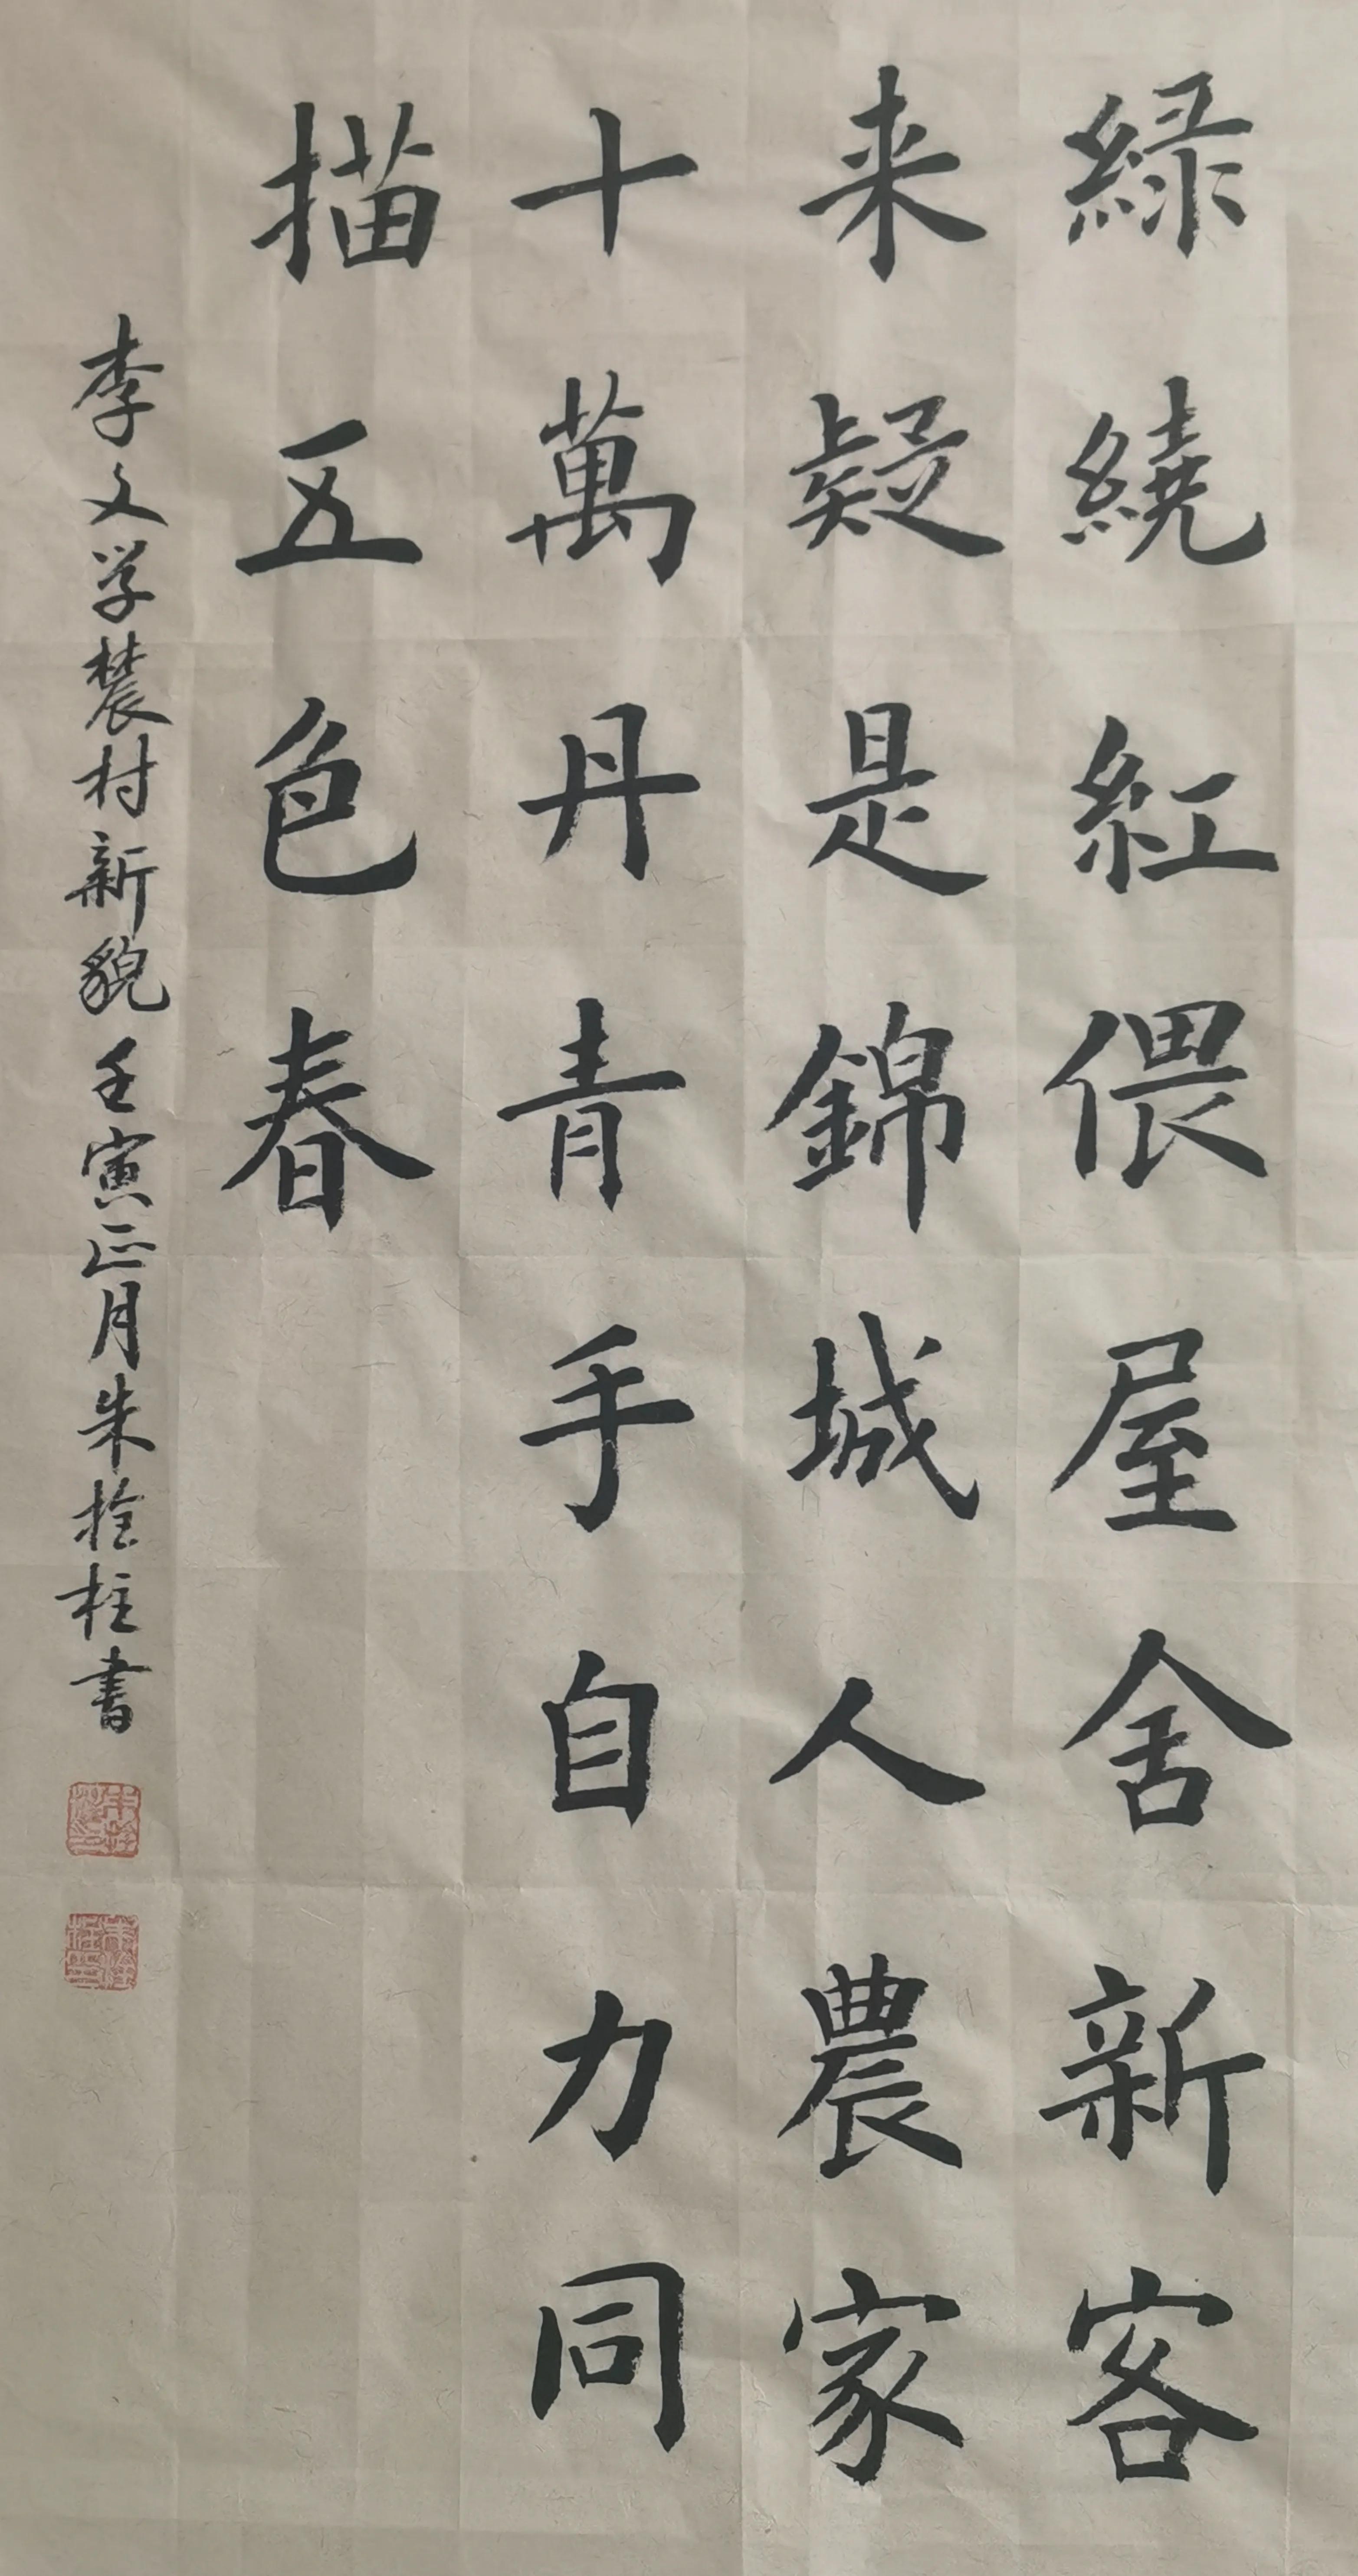 緑繞紅偎屋舍新客
来疑是錦城人農家
十萬丹青手自力同
描五色春
李文学農村新貌壬寅正月朱拴柱書